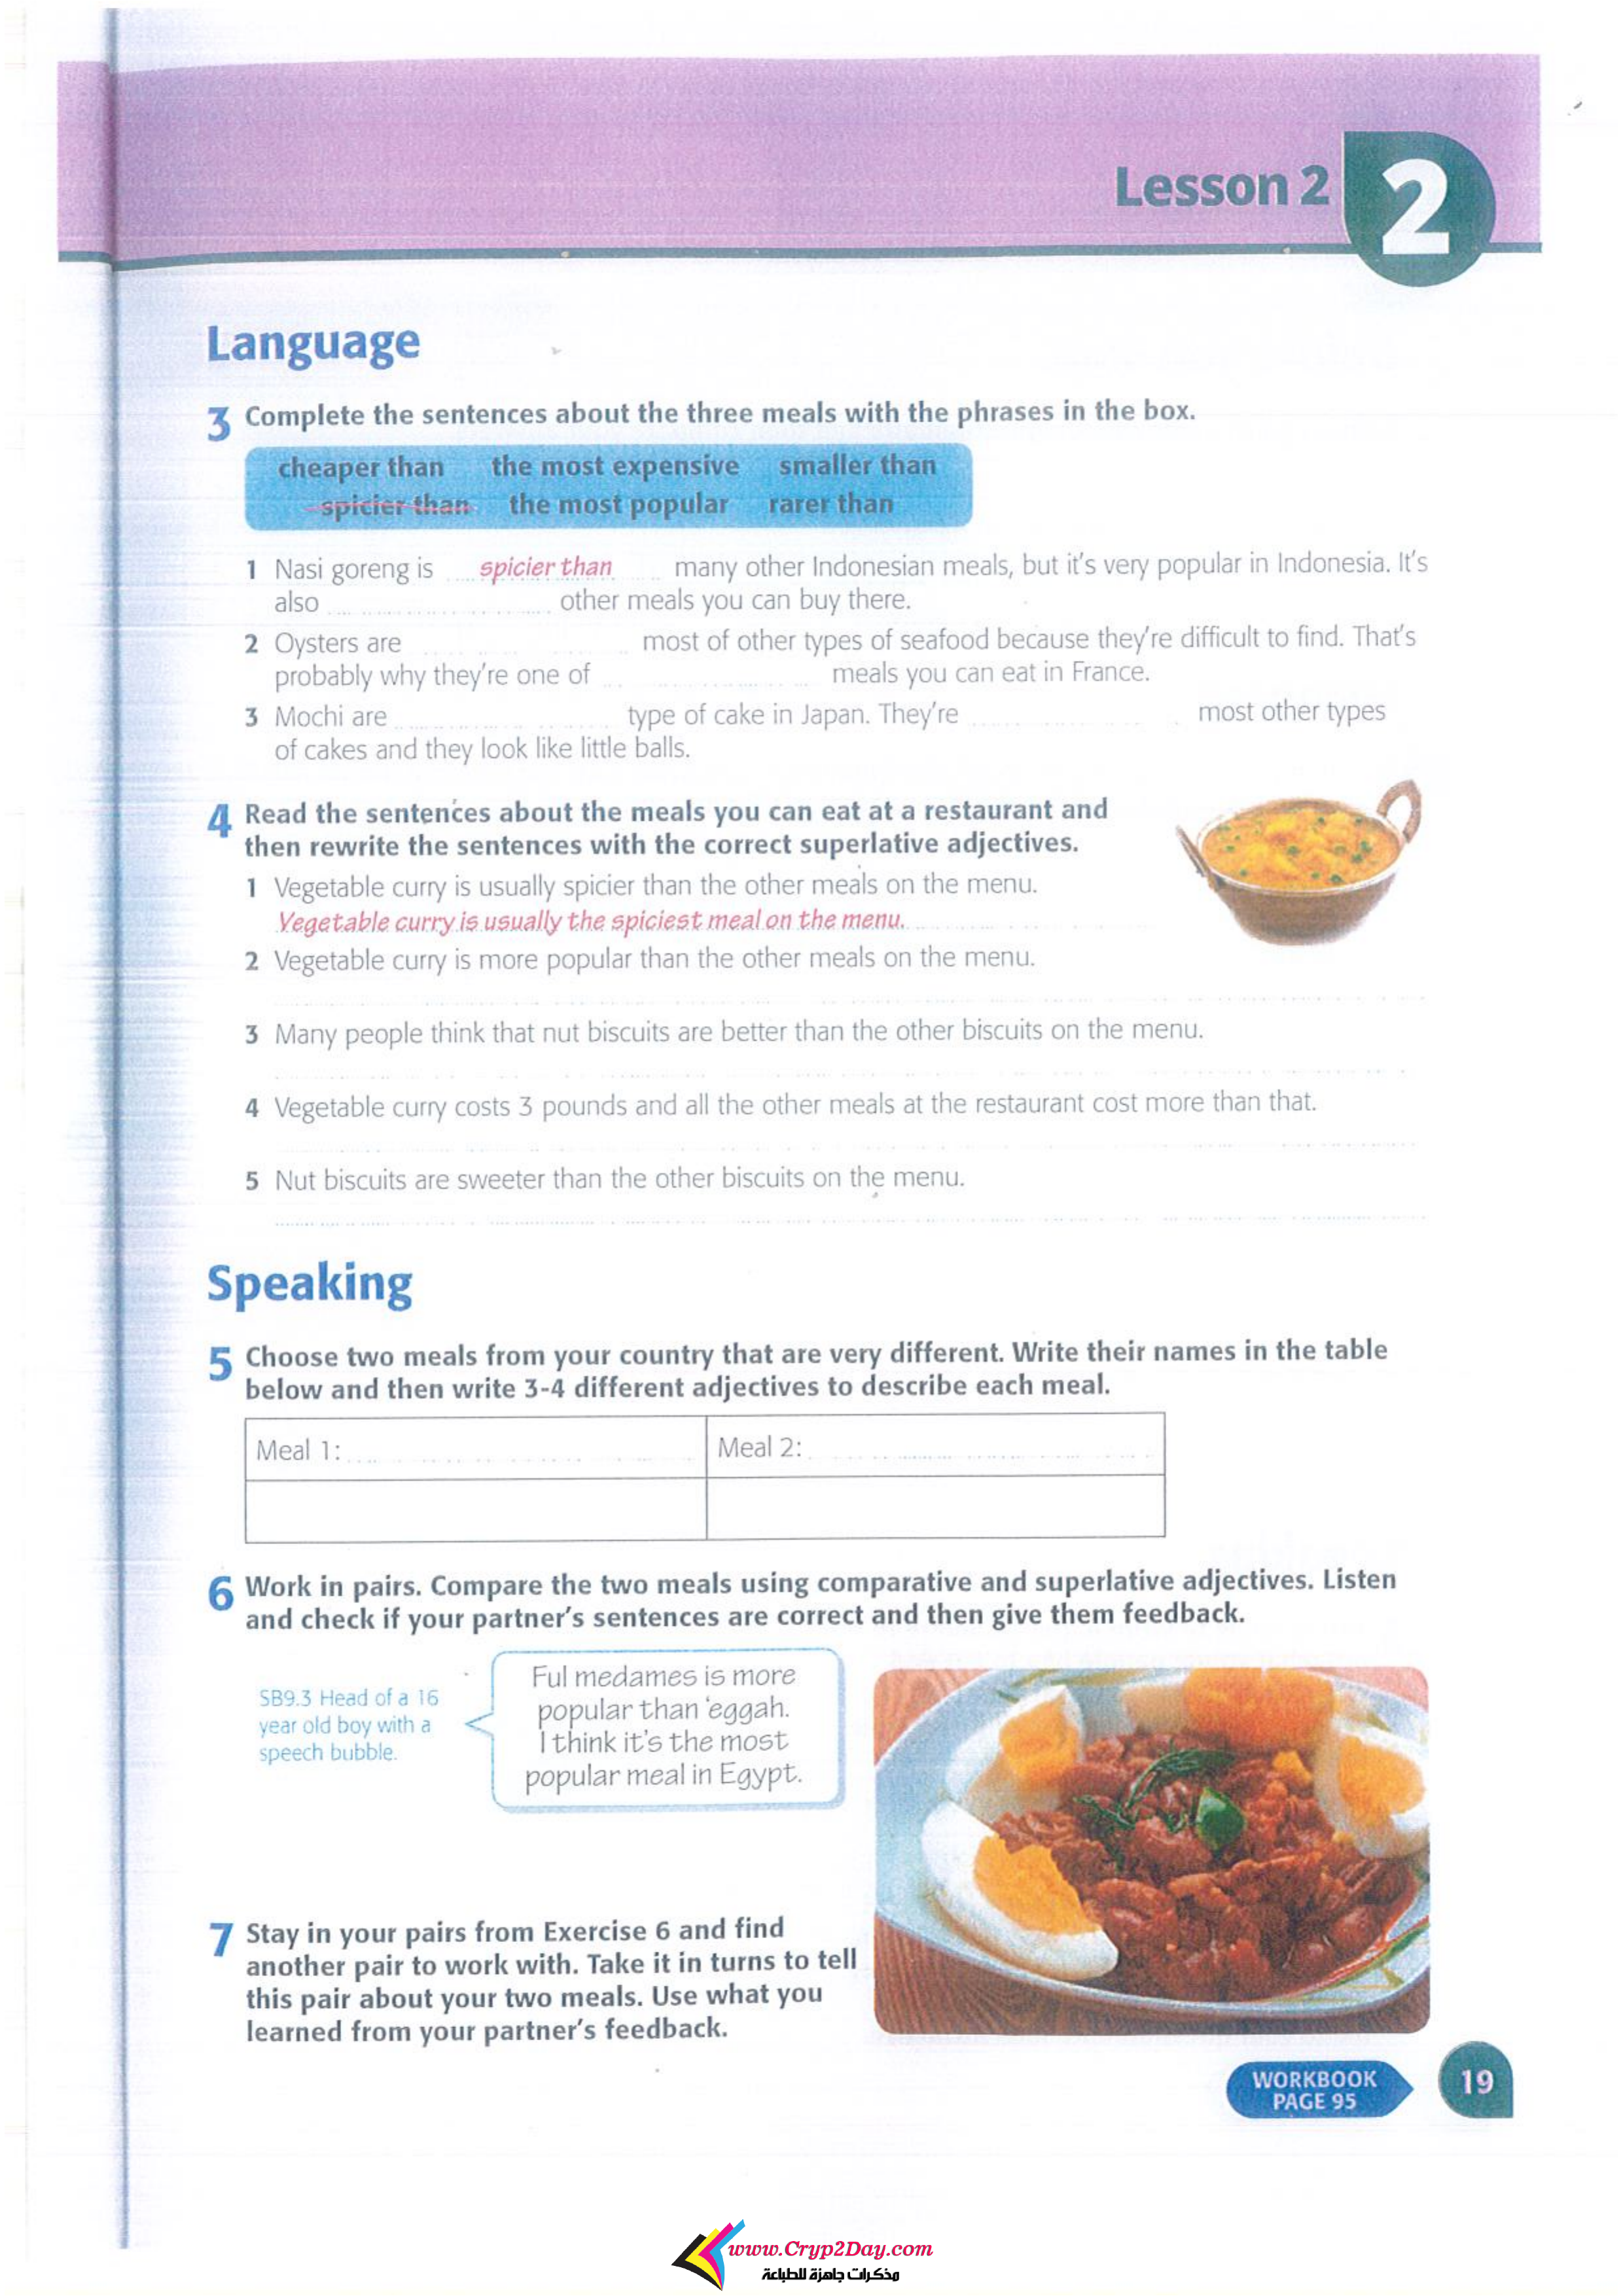 Lesson 2 2
Language
3 Complete the sentences about the three meals with the phrases in the box.
cheaper than the most expensive smaller than
spicier than the most popular rarer than
1 Nasi goreng is spicier than many other Indonesian meals, but it's very popular in Indonesia. It's
also other meals you can buy there.
2 Oysters are most of other types of seafood because they're difficult to find. That's
probably why they're one of meals you can eat in France.
3 Mochi are type of cake in Japan. They're most other types
of cakes and they look like little balls.
4 Read the sentences about the meals you can eat at a restaurant and
then rewrite the sentences with the correct superlative adjectives.
1 Vegetable curry is usually spicier than the other meals on the menu.
Vegetable curry is usually the spiciest meal on the menu.
2 Vegetable curry is more popular than the other meals on the menu.
3 Many people think that nut biscuits are better than the other biscuits on the menu.
4 Vegetable curry costs 3 pounds and all the other meals at the restaurant cost more than that.
5 Nut biscuits are sweeter than the other biscuits on the menu.
Speaking
5 Choose two meals from your country that are very different. Write their names in the table
below and then write 3-4 different adjectives to describe each meal.
Meal 1: Meal 2:
6 Work in pairs. Compare the two meals using comparative and superlative adjectives. Listen
and check if your partner's sentences are correct and then give them feedback.
SB9.3 Head of a 16
year old boy with a
speech bubble.
Ful medames is more
popular than 'eggah.
I think it's the most
popular meal in Egypt.
7 Stay in your pairs from Exercise 6 and find
another pair to work with. Take it in turns to tell
this pair about your two meals. Use what you
learned from your partner's feedback.
WORKBOOK
PAGE 95
19
www.Cryp2Day.com
مذكرات جاهزة للطباعة